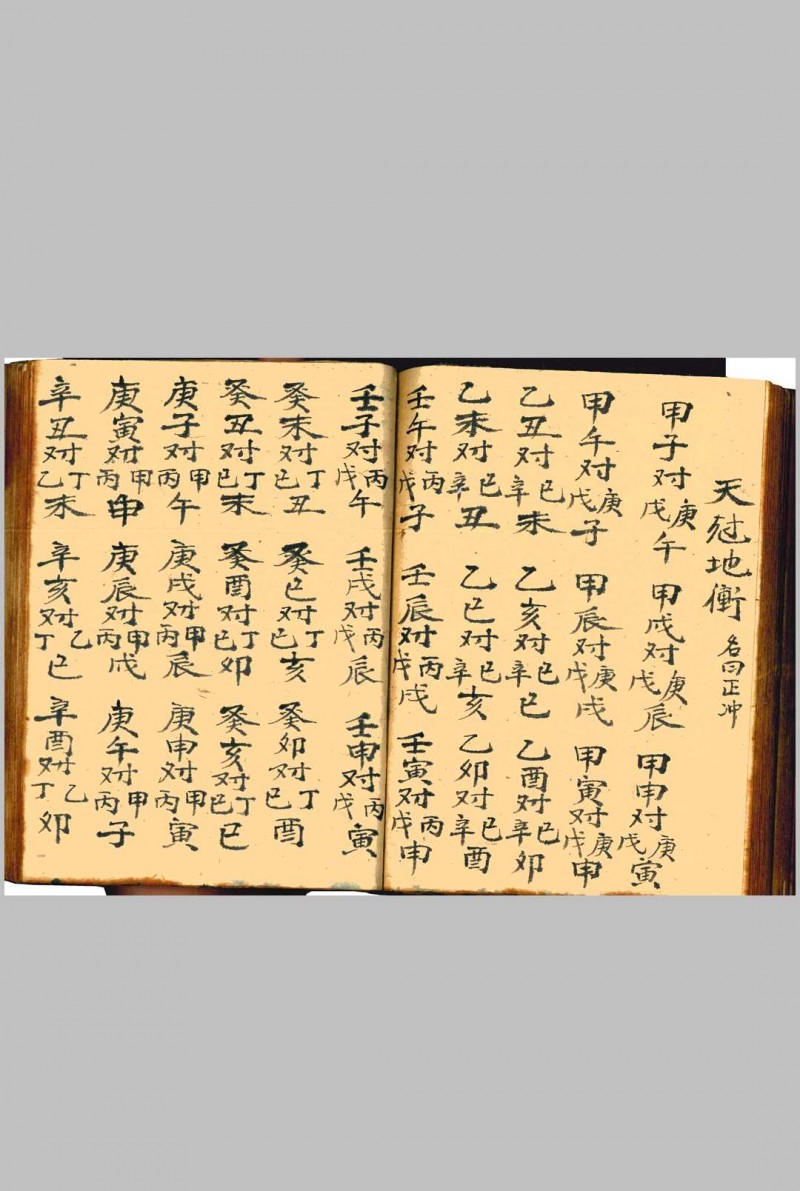 天尅地衝 名曰正冲
甲子对庚戊午 甲戌对庚戊辰 甲申对庚戊寅
甲午对庚戊子 甲辰对庚戊戌 甲寅对庚戊申
乙丑对己辛未 乙亥对己辛巳 乙酉对己辛卯
乙未对己辛丑 乙巳对己辛亥 乙卯对己辛酉
壬午对丙戊子 壬辰对丙戊戌 壬寅对丙戊申
壬子对丙戊午 壬戌对丙戊辰 壬申对丙戊寅
癸未对丁己丑 癸巳对丁己亥 癸卯对丁己酉
癸丑对丁己未 癸酉对丁己卯 癸亥对丁己巳
庚子对甲丙午 庚戌对甲丙辰 庚申对甲丙寅
庚寅对甲丙申 庚辰对甲丙戌 庚午对甲丙子
辛丑对丁乙未 辛亥对乙丁巳 辛酉对乙丁卯